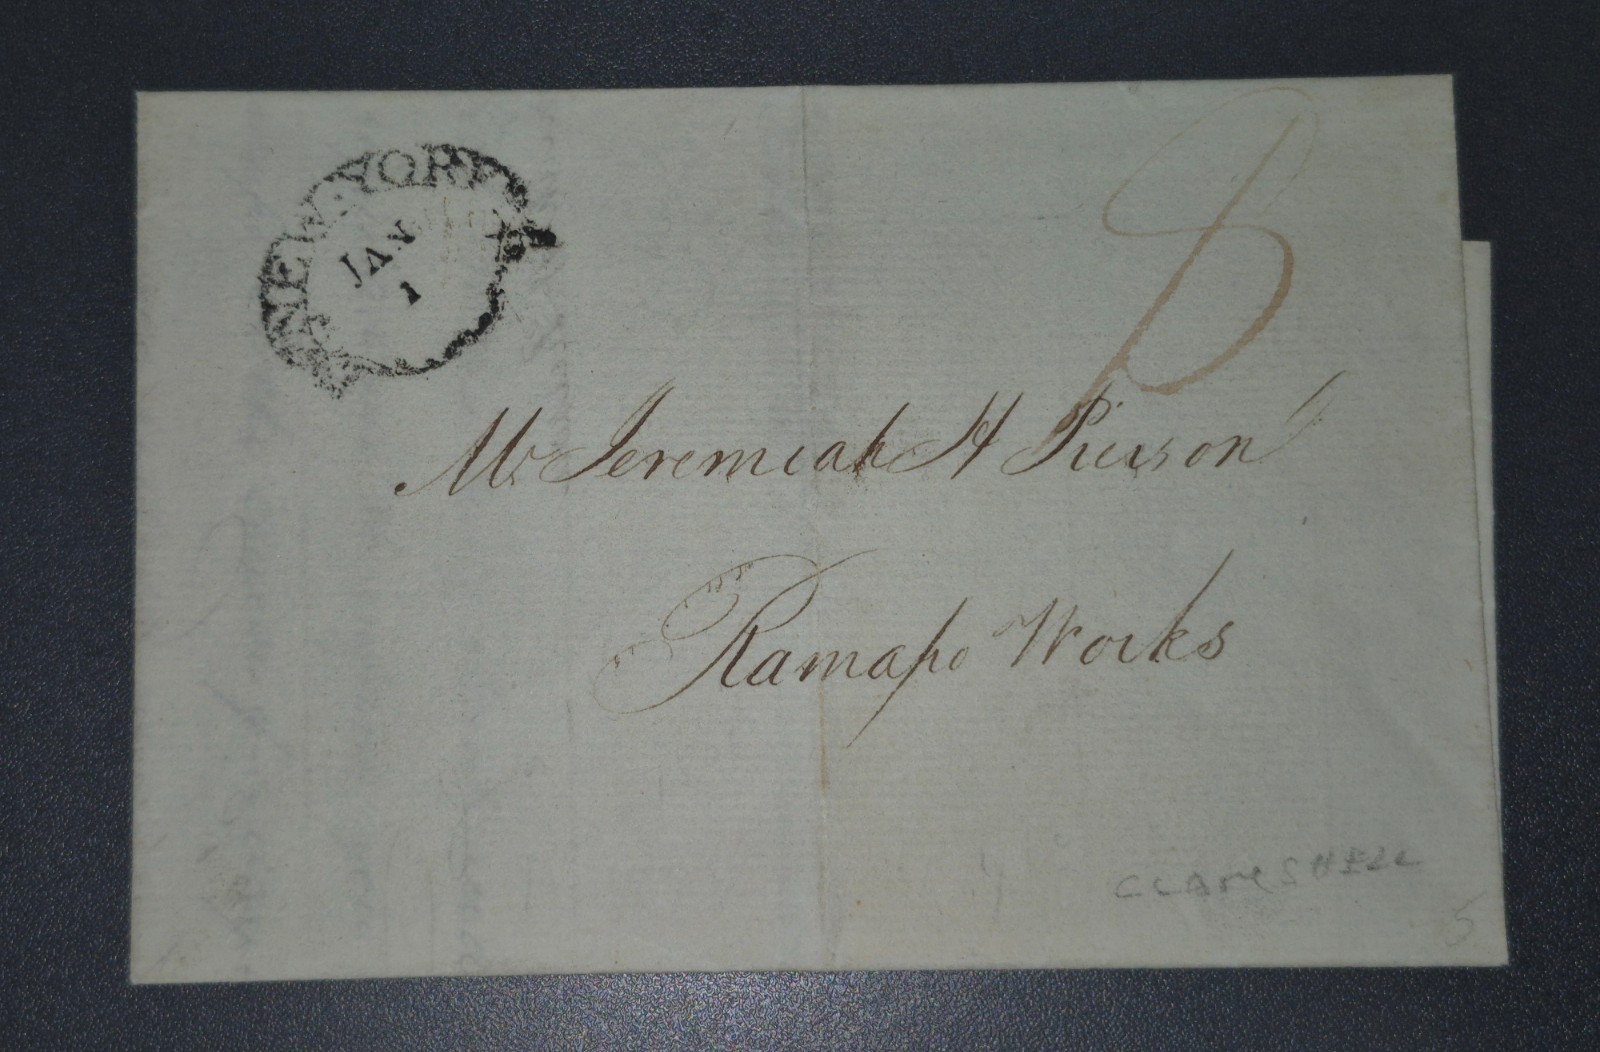 NEW-YORK
JAN
1
8
Mr Jeremiah H Pierson
Ramapo Works
CLAMSHELL
5